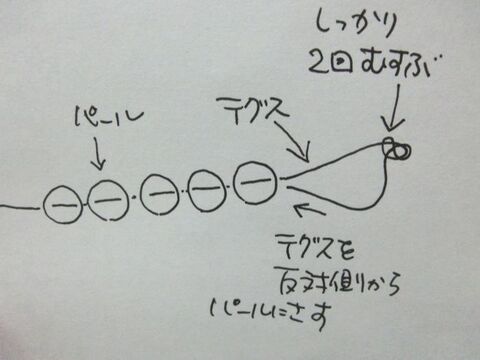 しっかり
2回むすぶ
テグス
パール
テグスを
反対側から
パールにさす